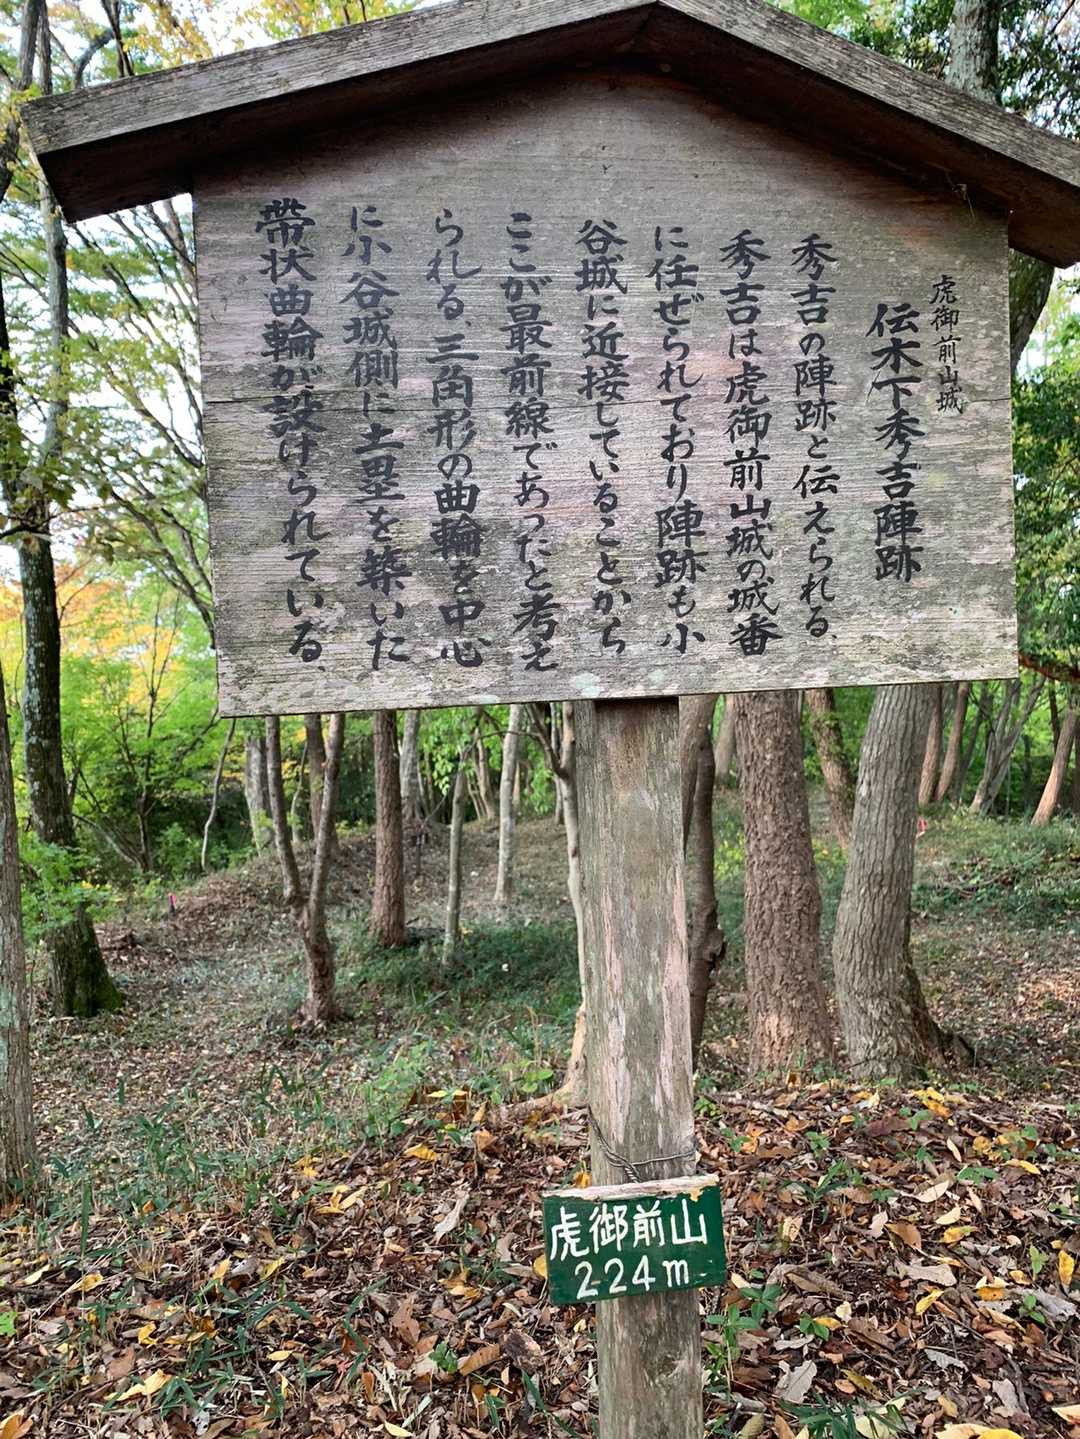 虎御前山城
伝木下秀吉陣跡
秀吉の陣跡と伝えられる、
秀吉は虎御前山城の城番
に任ぜられており陣跡も小
谷城に近接していることから
ここが最前線であったと考え
られる、三角形の曲輪を中心
に小谷城側に土塁を築いた
帯状曲輪が設けられている、
虎御前山
224m